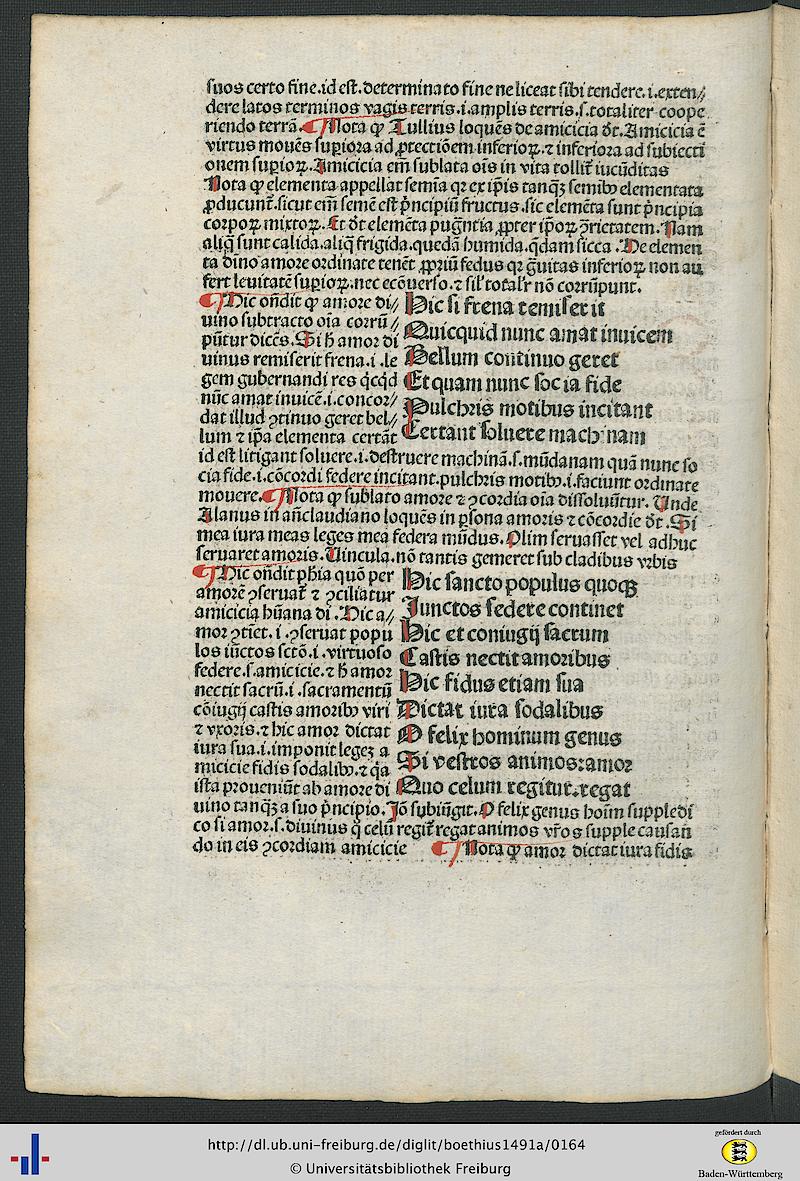 suos certo fine.id est.determinato fine ne liceat sibi tendere.i.exten⸗
dere latos terminos vagis terris.i.amplis terris.s.totaliter coope
riendo terrā.¶Nota ꝙ Tullius loquēs de amicicia dt̄.Amicicia ē
virtus mouēs suꝑiora ad ꝓtectiōem inferioꝝ.⁊ inferiora ad subiecti
onem suꝑioꝝ.Amicicia em̄ sublata oīs in vita tollit̄ iucūditas
Nota ꝙ elementa appellat semīa qꝛ ex ip̄is tanqꝫ semibꝰ elementata
ꝓducunt̄.sicut em̄ semē est pͥncipiū fructus.sic elemēta sunt pͥncipia
corpoꝝ mixtoꝝ.Et dt̄ elemēta pugn̄tia ꝓpter ip̄oꝝ ꝯrietatem.Nam
aliq̄ sunt calida.aliq̄ frigida.quedā humida.q̄dam sicca.De elemen
ta diuino amore ordinate tenēt ꝓpriū fedus qꝛ grauitas inferioꝝ non au
fert leuitatē suꝑioꝝ.nec ecōuerso.⁊ sil̓ total̓r nō corrūpunt.
¶Hic on̄dit ꝙ amore di⸗
uino subtracto oīa corrū⸗
pūtur dicēs.Si h̄ amor di
uinus remiserit frena.i.le
gem gubernandi res qͥcqͥd
nūc amat inuicē.i.concor⸗
dat illud ꝯtinuo geret bel⸗
lum ⁊ ip̄a elementa certāt
Hic si frena remiserit
Quicquid nunc amat inuicem
Bellum continuo geret
Et quam nunc socia fide
Pulchris motibus incitant
Certant soluere machinam
id est litigant soluere.i.destruere machinā.s.mūdanam quā nunc so
cia fide.i.cōcordi federe incitant.pulchris motibꝰ.i.faciunt ordinate
mouere.¶Nota ꝙ sublato amore ⁊ ꝯcordia oīa dissoluūtur. Unde
Alanus in an̄claudiano loquēs in ꝑsona amoris ⁊ cōcordie dt̄.Si
mea iura meas leges mea federa mūdus.Olim seruasset vel adhuc
seruaret amoris.Uincula.nō tantis gemeret sub cladibus vrbis
¶Hic on̄dit phīa quō per
amorē ꝯseruat̄ ⁊ ꝯciliatur
amicicia hūana di.Hic a⸗
mor ꝯtīet.i.ꝯseruat popu
los iūctos sctō.i.virtuoso
federe.s.amicicie.⁊ h̄ amor
nectit sacrū.i.sacramentū
cōiugij castis amoribꝰ viri
⁊ vxoris.⁊ hic amor dictat
iura sua.i.imponit legeꝫ a
micicie fidis sodalibꝰ.⁊ qͣa
ista proueniūt ab amore di
Hic sancto populus quoqꝫ
Junctos federe continet
Hic et coniugij sacrum
Castis nectit amoribus
Hic fidus etiam sua
Dictat iura sodalibus
O felix hominum genus
Si vestros animos:amor
Quo celum regitur.regat
uino tanqꝫ a suo pͥncipio.Jō subiūgit.O felix genus hoīm suppledi
co si amor.s.diuinus q̄ celū regit̄ regat animos vr̄os supple causan̄
do in eis ꝯcordiam amicicie ¶Nota ꝙ amor dictat iura fidis
http://dl.ub.uni-freiburg.de/diglit/boethius1491a/0164
© Universitätsbibliothek Freiburg
gefördert durch
Baden-Württemberg